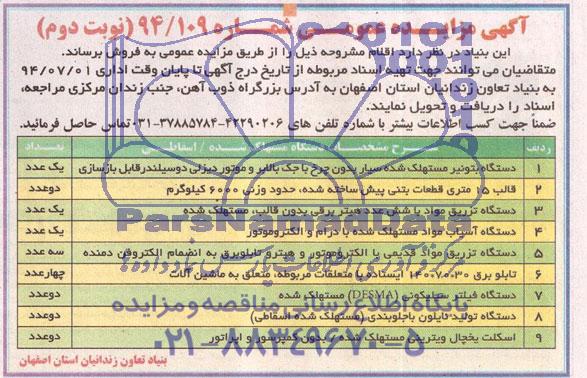 آگهی مزایده عمومی شماره ۹۴/۱۰۹ (نوبت دوم)
این بنیاد در نظر دارد اقلام مشروحه ذیل را از طریق مزایده عمومی به فروش برساند.
متقاضیان می توانند جهت تهیه اسناد مربوطه از تاریخ درج آگهی تا پایان وقت اداری ۹۴/۰۷/۰۱
به بنیاد تعاون زندانیان استان اصفهان به آدرس بزرگراه ذوب آهن، جنب زندان مرکزی مراجعه،
اسناد را دریافت و تحویل نمایند.
ضمناً جهت کسب اطلاعات بیشتر با شماره تلفن های ۴۲۲۹۰۲۰۶-۳۷۸۸۵۷۸۴-۰۳۱ تماس حاصل فرمائید.
ردیف شرح مشخصات دستگاه مستهلک شده / اسقاطی تعداد
۱ دستگاه بتونیر مستهلک شده سیار بدون چرخ با جک بالابر و موتور دیزلی دوسیلندر قابل بازسازی یک عدد
۲ قالب ۱۵ متری قطعات بتنی پیش ساخته شده، حدود وزنی ۶۰۰۰ کیلوگرم دوعدد
۳ دستگاه تزریق مواد با شش عدد هیتر برقی بدون قالب، مستهلک شده یک عدد
۴ دستگاه آسیاب مواد مستهلک شده با درام و الکتروموتور یک عدد
۵ دستگاه تزریق مواد قدیمی با الکتروموتور و هیتر و تابلوبرق به انضمام الکتروفن دمنده سه عدد
۶ تابلو برق ۳۰*۷۰*۱۴۰ ایستاده با متعلقات مربوطه، متعلق به ماشین آلات چهارعدد
۷ دستگاه فیلتر سیلیکونی (DESMA) مستهلک شده دوعدد
۸ دستگاه تولید نایلون باجلوبندی (مستهلک شده اسقاطی) دوعدد
۹ اسکلت یخچال ویترینی مستهلک شده / بدون کمپرسور و اپراتور دوعدد
بنیاد تعاون زندانیان استان اصفهان
ParsNamadData
پایگاه اطلاع رسانی مناقصه و مزایده
۰۲۱-۸۸۳۴۹۶۷۰-۵